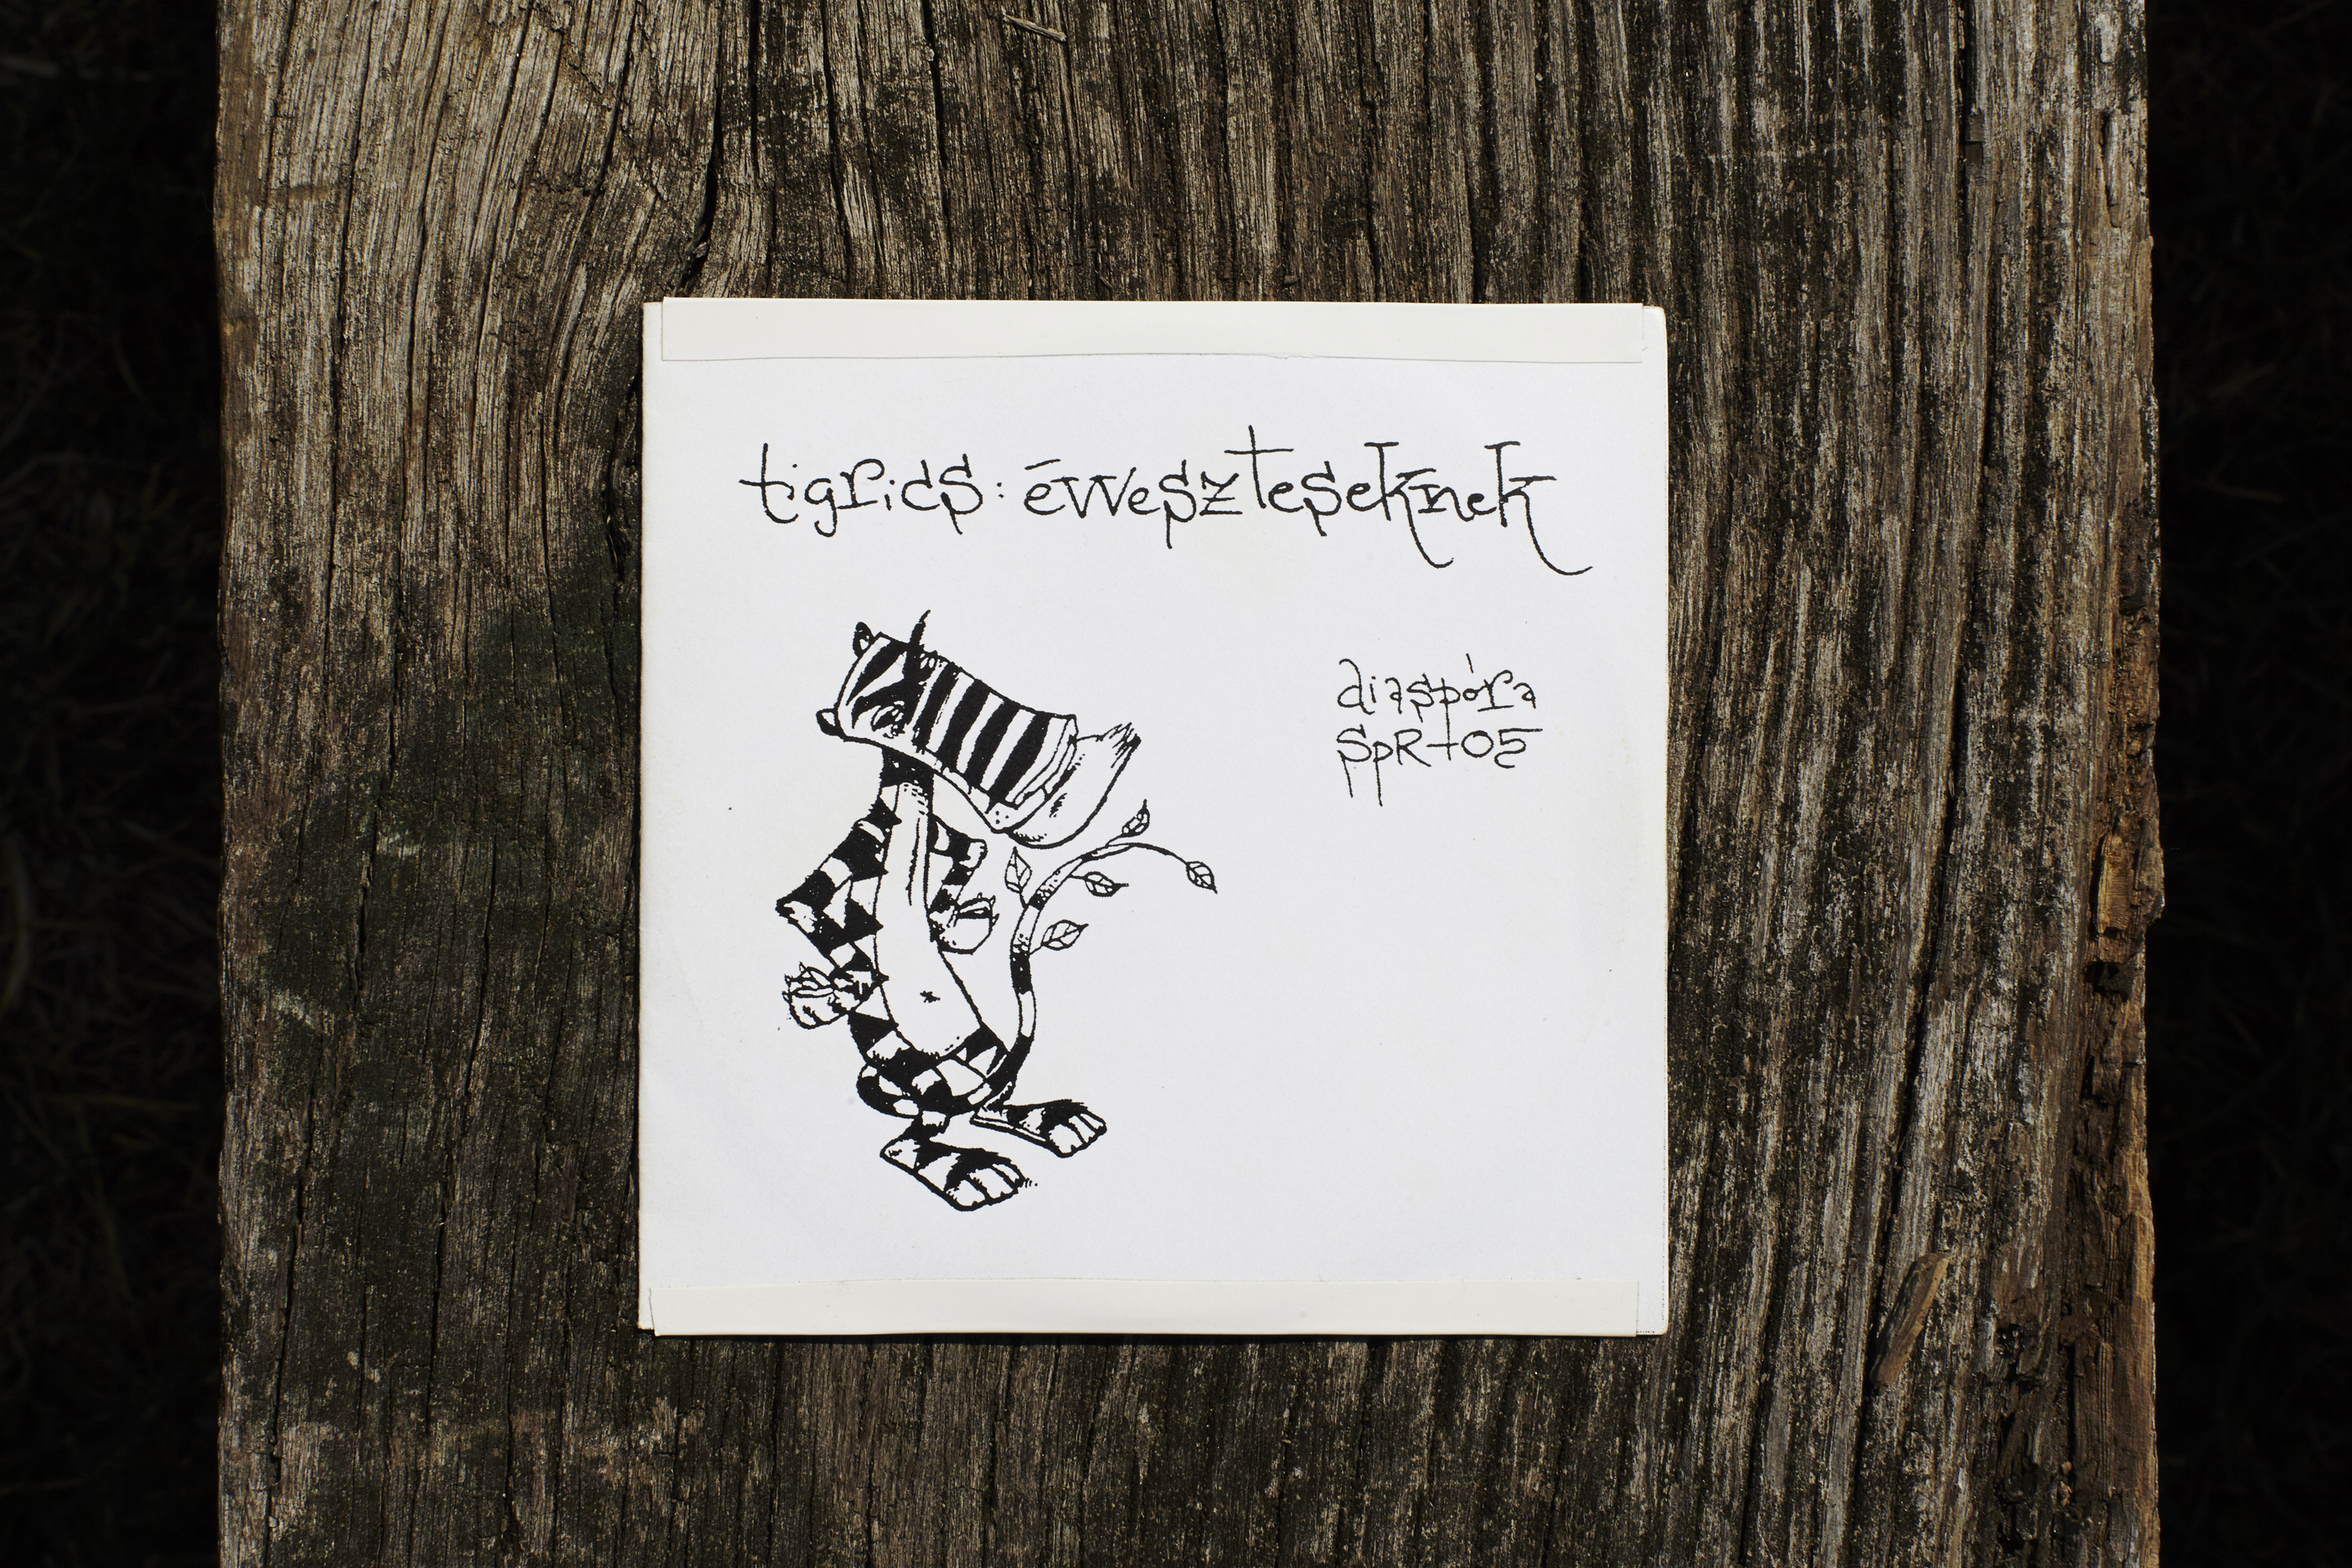 tigrics: évveszteseknek
diaspóra
SpR-05